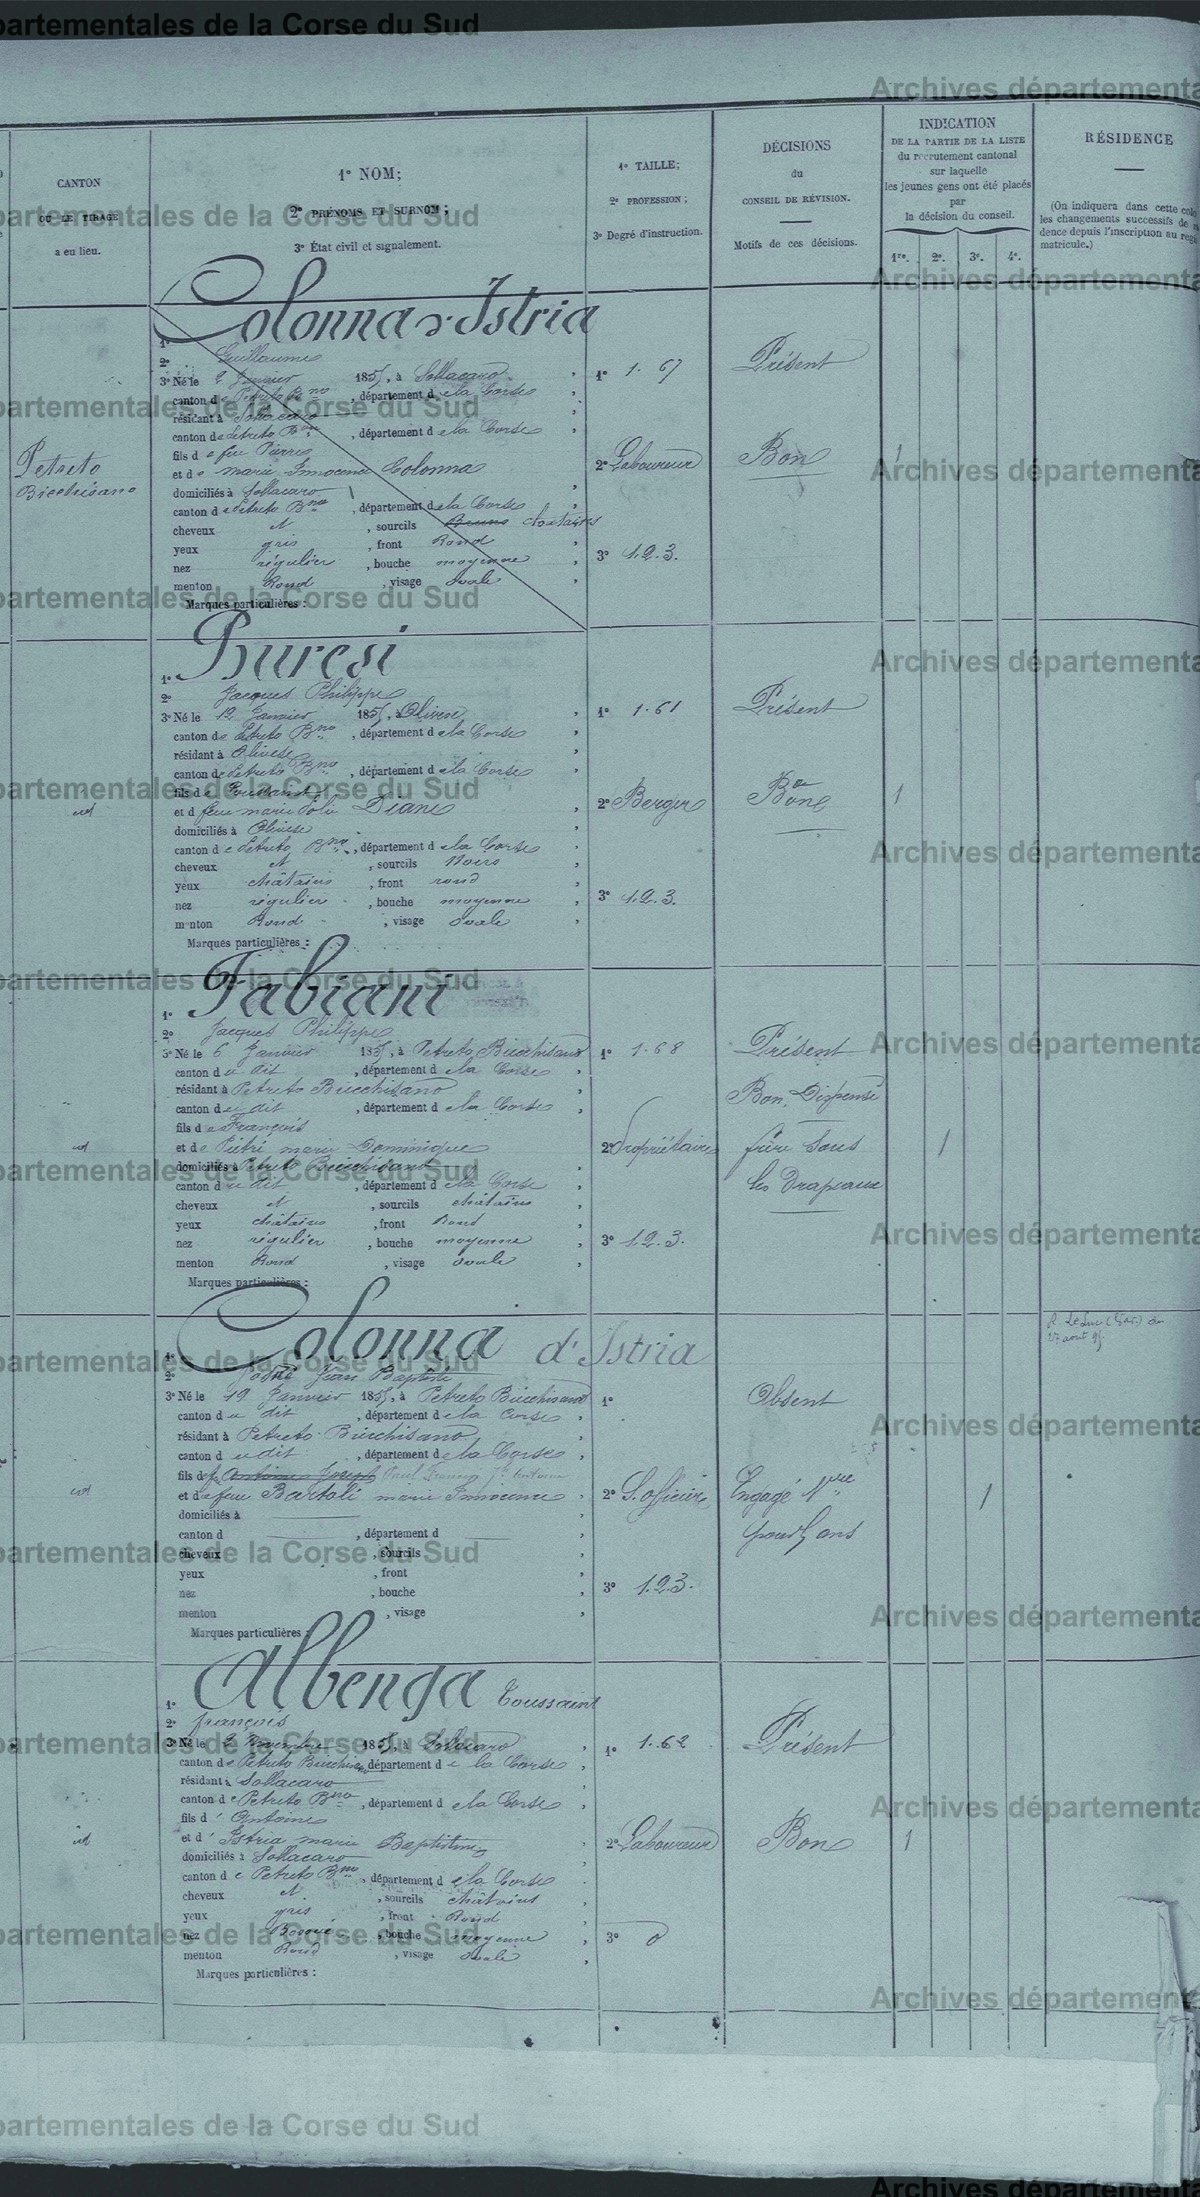 CANTON
OU LE TIRAGE
a eu lieu.
1° NOM;
2° PRÉNOMS ET SURNOM;
3° État civil et signalement.
1° TAILLE;
2° PROFESSION;
3° Degré d'instruction.
DÉCISIONS
du
CONSEIL DE RÉVISION.
Motifs de ces décisions.
INDICATION
DE LA PARTIE DE LA LISTE
du recrutement cantonal
sur laquelle
les jeunes gens ont été placés
par
la décision du conseil.
1re. 2e. 3e. 4e.
RÉSIDENCE
(On indiquera dans cette
les changements successifs de
dence depuis l'inscription au
matricule.)
Petreto
Bicchisano
1° Colonna d'Istria
2° Guillaume
3° Né le 2 Janvier 1855, à Sollacaro
canton de Petreto Bno, département de la Corse
résidant à Sollacaro
canton de Petreto Bno, département de la Corse
fils de feu Pierre
et de marie Innocence Colonna
domiciliés à Sollacaro
canton de Petreto Bno, département de la Corse
cheveux et, sourcils Bruns chatains
yeux gris, front Rond
nez régulier, bouche moyenne
menton Rond, visage Ovale
Marques particulières :
1° 1.67
2° Laboureur
3° 1.2.3.
Présent
Bon
1
1° Buresi
2° Jacques Philippe
3° Né le 12 Janvier 1855, à Olivese
canton de Petreto Bno, département de la Corse
résidant à Olivese
canton de Petreto Bno, département de la Corse
fils de Toussaint
et de feue marie Diane
domiciliés à Olivese
canton de Petreto Bno, département de la Corse
cheveux et, sourcils Noirs
yeux châtains, front rond
nez régulier, bouche moyenne
menton Rond, visage Ovale
Marques particulières :
id
1° 1.61
2° Berger
3° 1.2.3.
Présent
Bon
1
1° Fabiani
2° Jacques Philippe
3° Né le 6 Janvier 1855, à Petreto Bicchisano
canton du dit, département de la Corse
résidant à Petreto Bicchisano
canton du dit, département de la Corse
fils de François
et de Pietri marie Dominique
domiciliés à Petreto Bicchisano
canton du dit, département de la Corse
cheveux et, sourcils châtains
yeux châtains, front Rond
nez régulier, bouche moyenne
menton Rond, visage Ovale
Marques particulières :
id
1° 1.68
2° Propriétaire
3° 1.2.3.
Présent
Bon. Dispensé
frère sous
les Drapeaux
1
1° Colonna d'Istria
2° Jean Baptiste
3° Né le 19 Janvier 1855, à Petreto Bicchisano
canton du dit, département de la Corse
résidant à Petreto Bicchisano
canton du dit, département de la Corse
fils de Antoine Joseph
et de feue Bartoli marie Innocence
domiciliés à
canton d, département d
cheveux, sourcils
yeux, front
nez, bouche
menton, visage
Marques particulières :
id
1°
2° S. officier
3° 1.2.3.
Absent
Engagé Vre
pour 5 ans
1
1° Albenga Toussaint
2° françois
3° Né le 2 Novembre 1855, à Sollacaro
canton de Petreto Bicchisano, département de la Corse
résidant à Sollacaro
canton de Petreto Bno, département de la Corse
fils d'Antoine
et d'Istria marie Baptistine
domiciliés à Sollacaro
canton de Petreto Bno, département de la Corse
cheveux et, sourcils châtains
yeux gris, front Rond
nez, bouche moyenne
menton Rond, visage Ovale
Marques particulières :
id
1° 1.62
2° Laboureur
3° 0
Présent
Bon
1